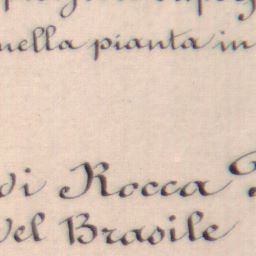 nella pianta in
di Rocca
del Brasile